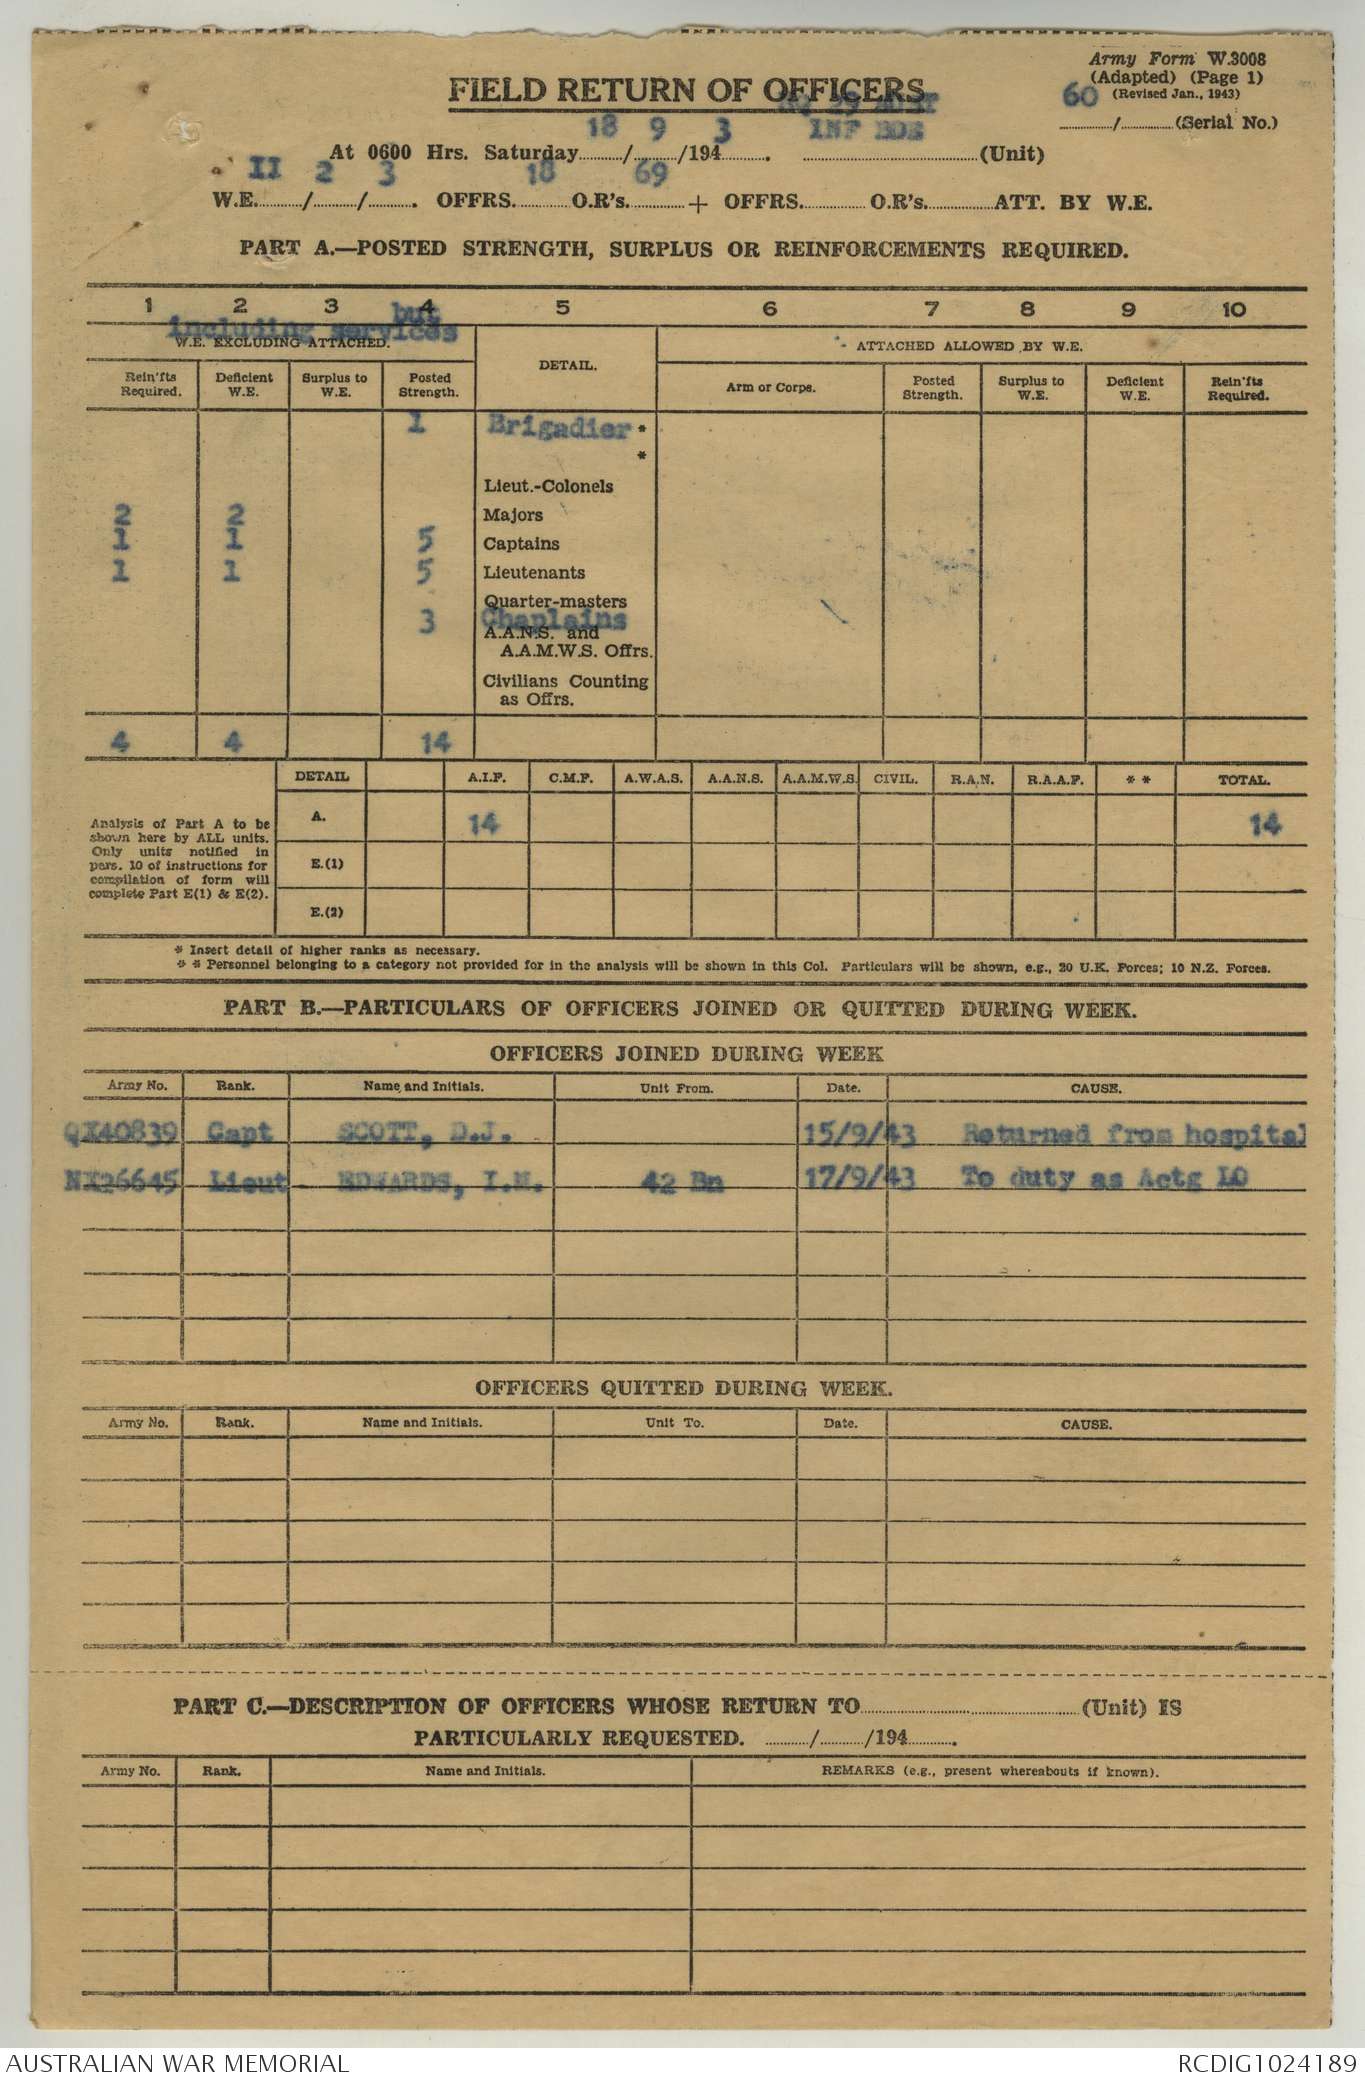 Army Form W.3008
(Adapted) (Page 1)
(Revised Jan., 1943)
60
............/............(Serial No.)
FIELD RETURN OF OFFICERS
HQ 29 AUST
INF BDE
At 0600 Hrs. Saturday 18 / 9 /194 3 . (Unit)
W.E. II / 2 / 3 . OFFRS. 18 O.R's. 69 + OFFRS. O.R's. ATT. BY W.E.
PART A.—POSTED STRENGTH, SURPLUS OR REINFORCEMENTS REQUIRED.
1 2 3 4 5 6 7 8 9 10
but
including services
W.E. EXCLUDING ATTACHED.
DETAIL.
ATTACHED ALLOWED BY W.E.
Rein'fts Required. Deficient W.E. Surplus to W.E. Posted Strength. Arm or Corps. Posted Strength. Surplus to W.E. Deficient W.E. Rein'fts Required.
1 Brigadier *
*
Lieut.-Colonels
2 2 Majors
1 1 5 Captains
1 1 5 Lieutenants
Quarter-masters
3 Chaplains
A.A.N.S. and
A.A.M.W.S. Offrs.
Civilians Counting
as Offrs.
4 4 14
DETAIL A.I.F. C.M.F. A.W.A.S. A.A.N.S. A.A.M.W.S. CIVIL. R.A.N. R.A.A.F. * * TOTAL.
Analysis of Part A to be
shown here by ALL units.
Only units notified in
pars. 10 of instructions for
compilation of form will
complete Part E(1) & E(2).
A. 14 14
E.(1)
E.(2)
* Insert detail of higher ranks as necessary.
* * Personnel belonging to a category not provided for in the analysis will be shown in this Col. Particulars will be shown, e.g., 20 U.K. Forces; 10 N.Z. Forces.
PART B.—PARTICULARS OF OFFICERS JOINED OR QUITTED DURING WEEK.
OFFICERS JOINED DURING WEEK
Army No. Rank. Name and Initials. Unit From. Date. CAUSE.
QX40839 Capt SCOTT, D.J. 15/9/43 Returned from hospital
NX26645 Lieut EDWARDS, I.M. 42 Bn 17/9/43 To duty as Actg LO
OFFICERS QUITTED DURING WEEK.
Army No. Rank. Name and Initials. Unit To. Date. CAUSE.
PART C.—DESCRIPTION OF OFFICERS WHOSE RETURN TO (Unit) IS
PARTICULARLY REQUESTED. ........../........../194.......... .
Army No. Rank. Name and Initials. REMARKS (e.g., present whereabouts if known).
AUSTRALIAN WAR MEMORIAL
RCDIG1024189